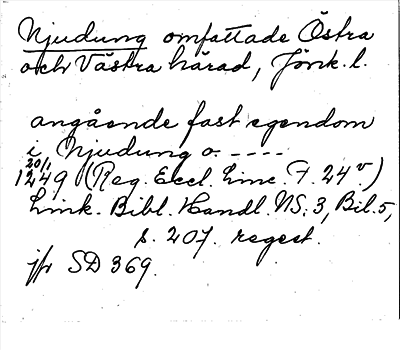 Njudung omfattade Östra
och Västra härad, Jönk. l.
angående fast egendom
i Njudung o. - - - -
20/1
1249 (Reg. Eccl. Linc. F. 24 v)
Link. Bibl. Handl. NS: 3, Bil. 5,
s. 207. regest.
jfr SD 369.